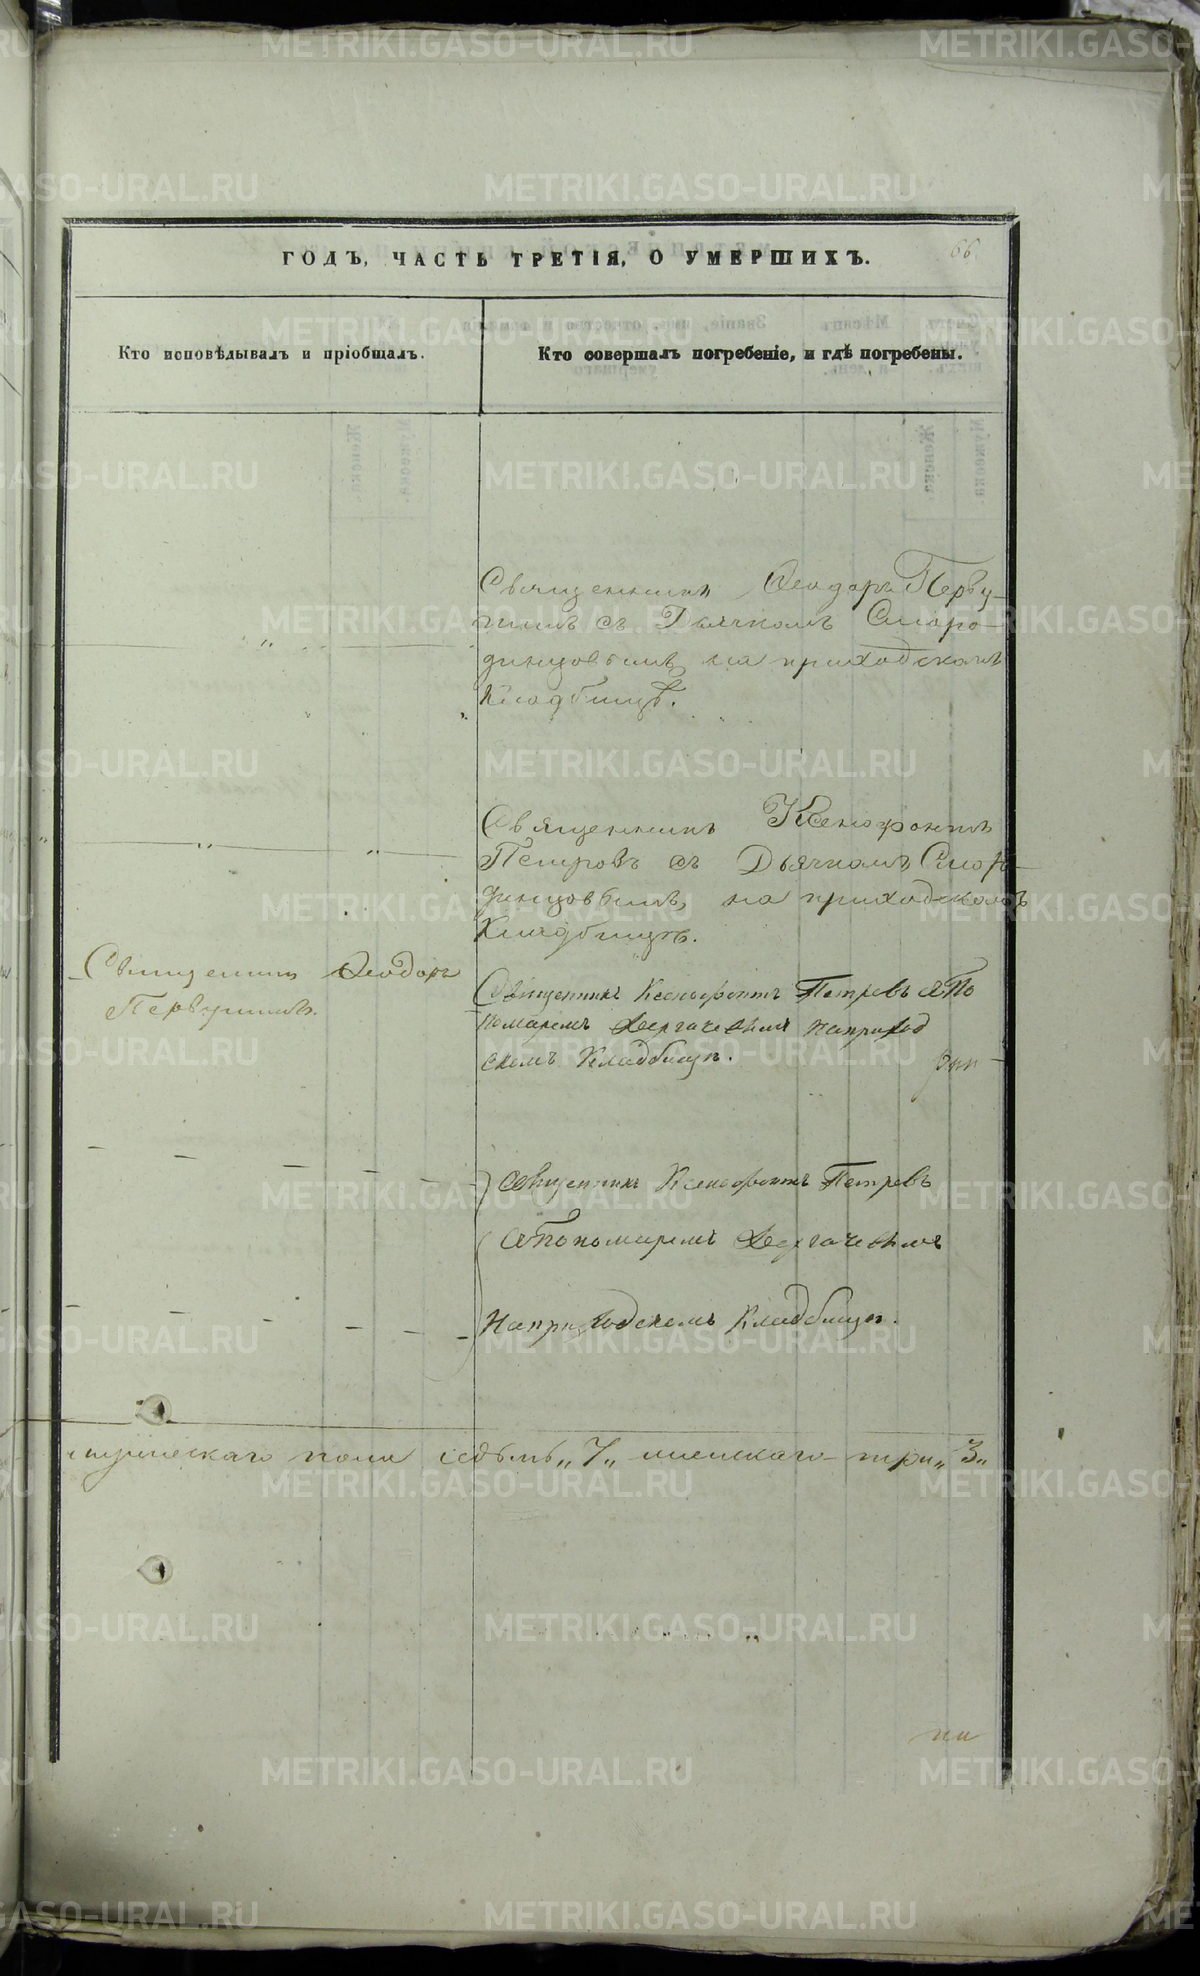 METRIKI.GASO-URAL.RU
66
ГОДЪ, ЧАСТЬ ТРЕТІЯ, О УМЕРШИХЪ.
Кто исповѣдывалъ и пріобщалъ.
Кто совершалъ погребеніе, и гдѣ погребены.
Священникъ Ѳеодоръ Перву-
шинъ съ Дьячкомъ Сморо-
динцовымъ на приходскомъ
Кладбищѣ.
Священникъ Ксенофонтъ
Петровъ съ Дьячкомъ Смор-
динцовымъ, на приходскомъ
Кладбищѣ.
Священникъ Ѳеодоръ
Первушинъ.
Священникъ Ксенофонтъ Петровъ съ По
номаремъ Дергачевымъ на приход
скомъ Кладбищѣ.
Священникъ Ксенофонтъ Петровъ
съ Пономаремъ Дергачевымъ
На приходскомъ Кладбищѣ.
мужескаго пола седьмъ „7„ женскаго три „3„